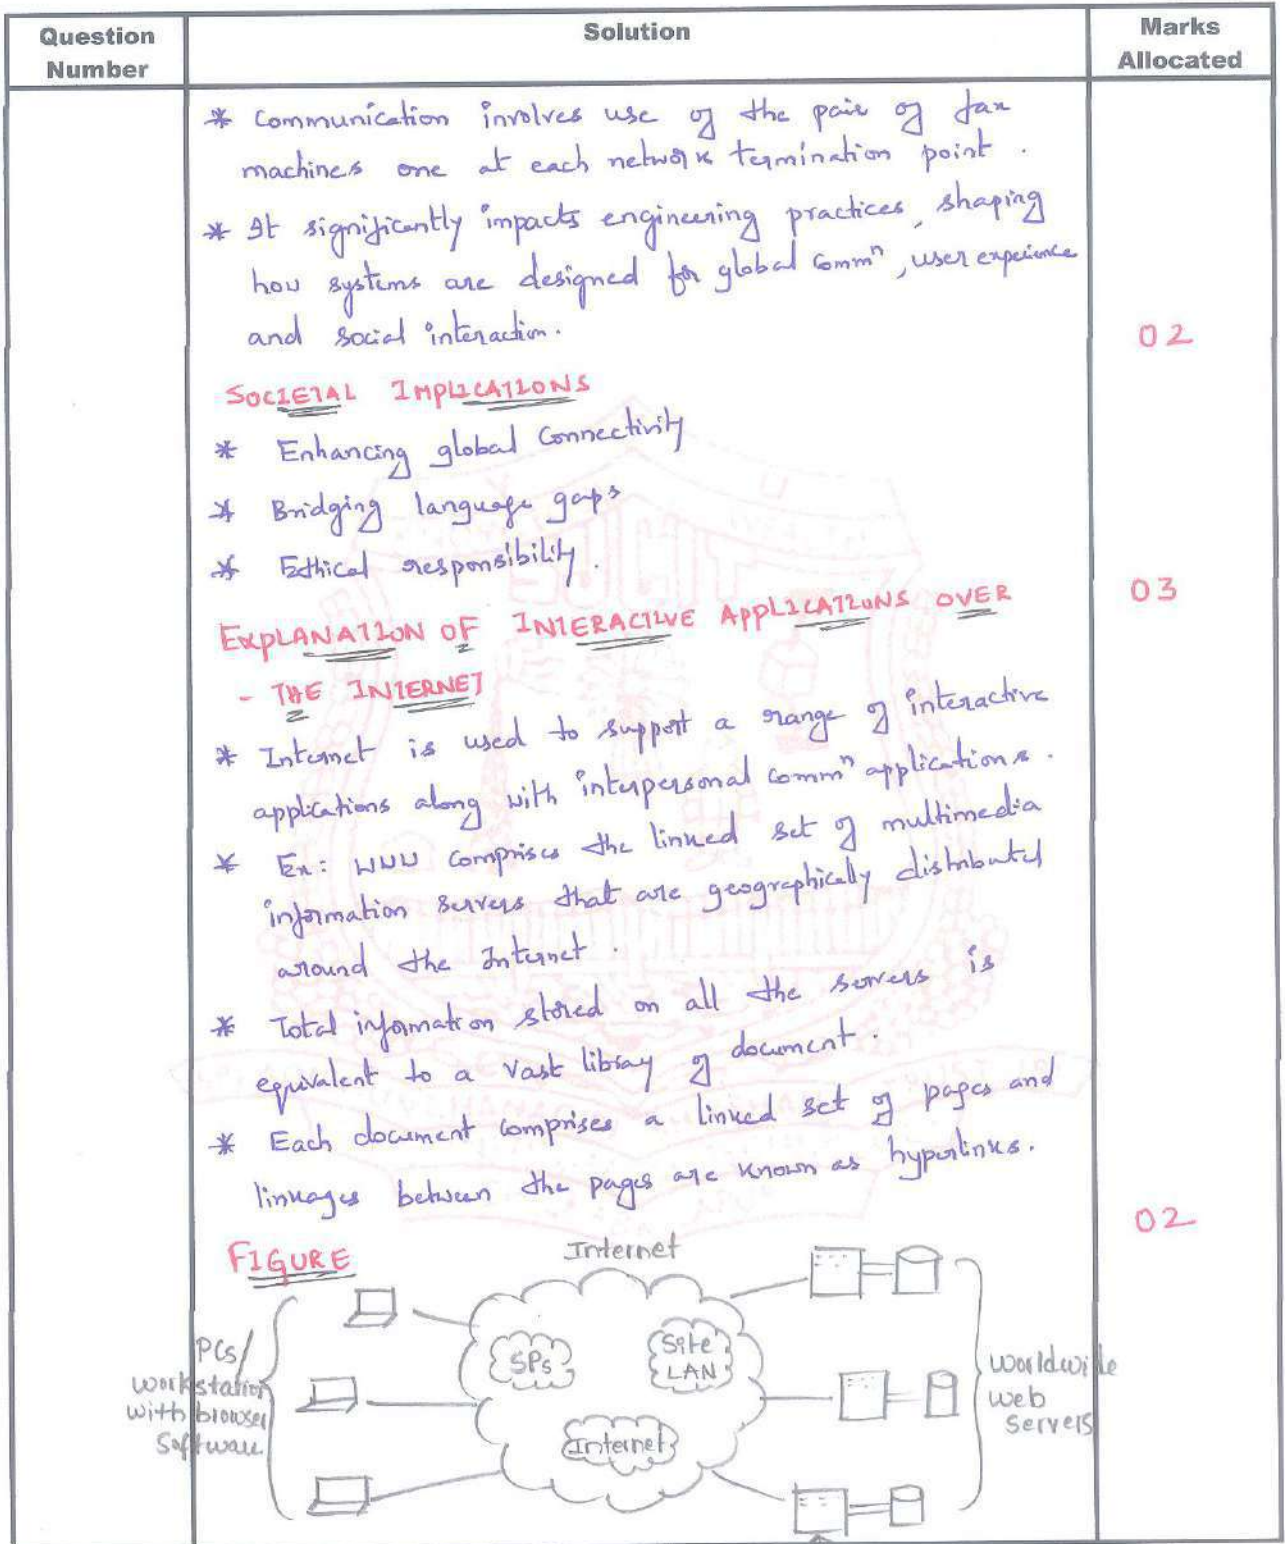 Question Number
Solution
Marks Allocated
* Communication involves use of the pair of fax
machines one at each network termination point.
* It significantly impacts engineering practices, shaping
how systems are designed for global commⁿ, user experience
and social interaction.
02
SOCIETAL IMPLICATIONS
* Enhancing global Connectivity
* Bridging language gaps
* Ethical responsibility.
03
EXPLANATION OF INTERACTIVE APPLICATIONS OVER
- THE INTERNET
* Internet is used to support a range of interactive
applications along with interpersonal commⁿ applications.
* Ex: WWW comprises the linked set of multimedia
information servers that are geographically distributed
around the Internet.
* Total information stored on all the servers is
equivalent to a vast library of document.
* Each document comprises a linked set of pages and
linkages between the pages are known as hyperlinks.
02
FIGURE
Internet
PCs/
workstation
with browser
Software
SPs
Site
LAN
Internet
worldwide
web
Servers